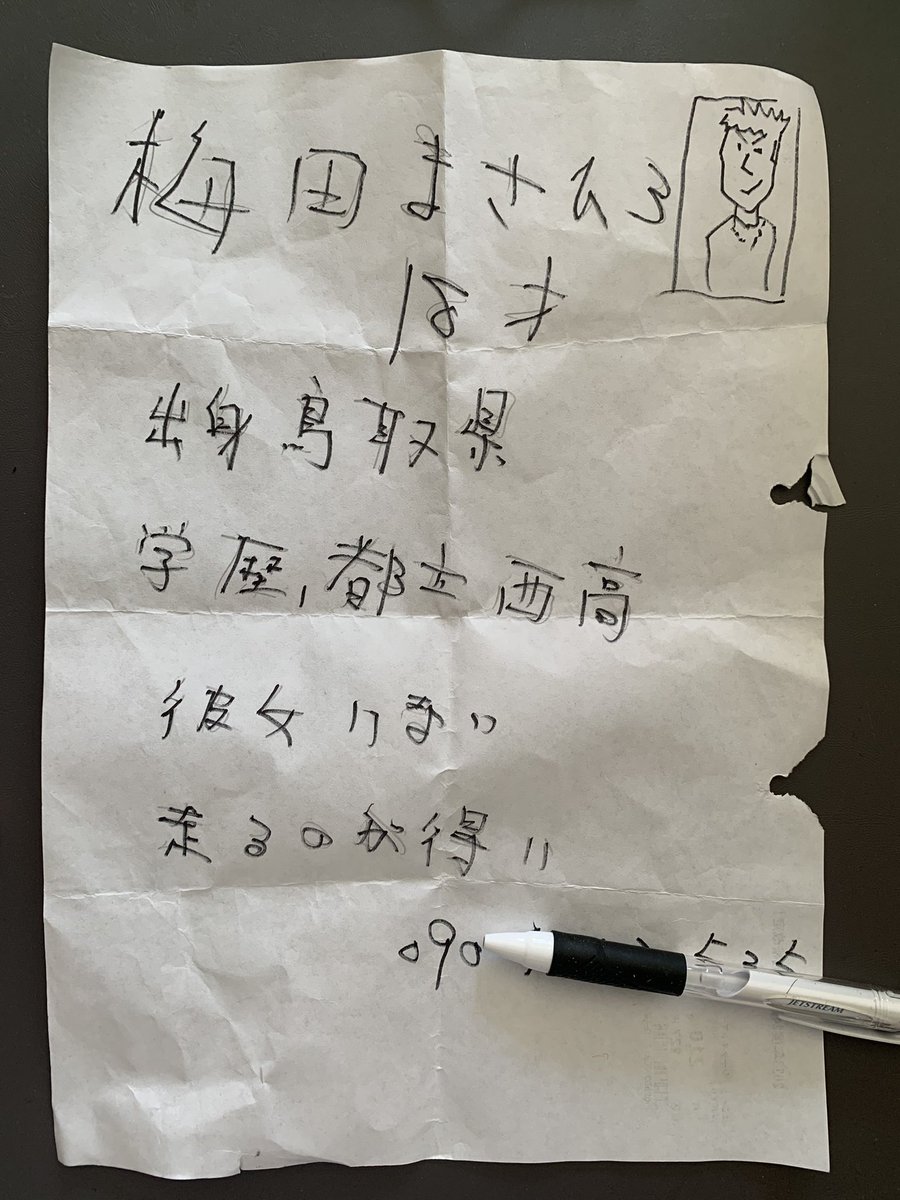 梅田まさひろ
18才
出身鳥取県
学歴,都立西高
彼女いない
走るのが得い
090
JETSTREAM